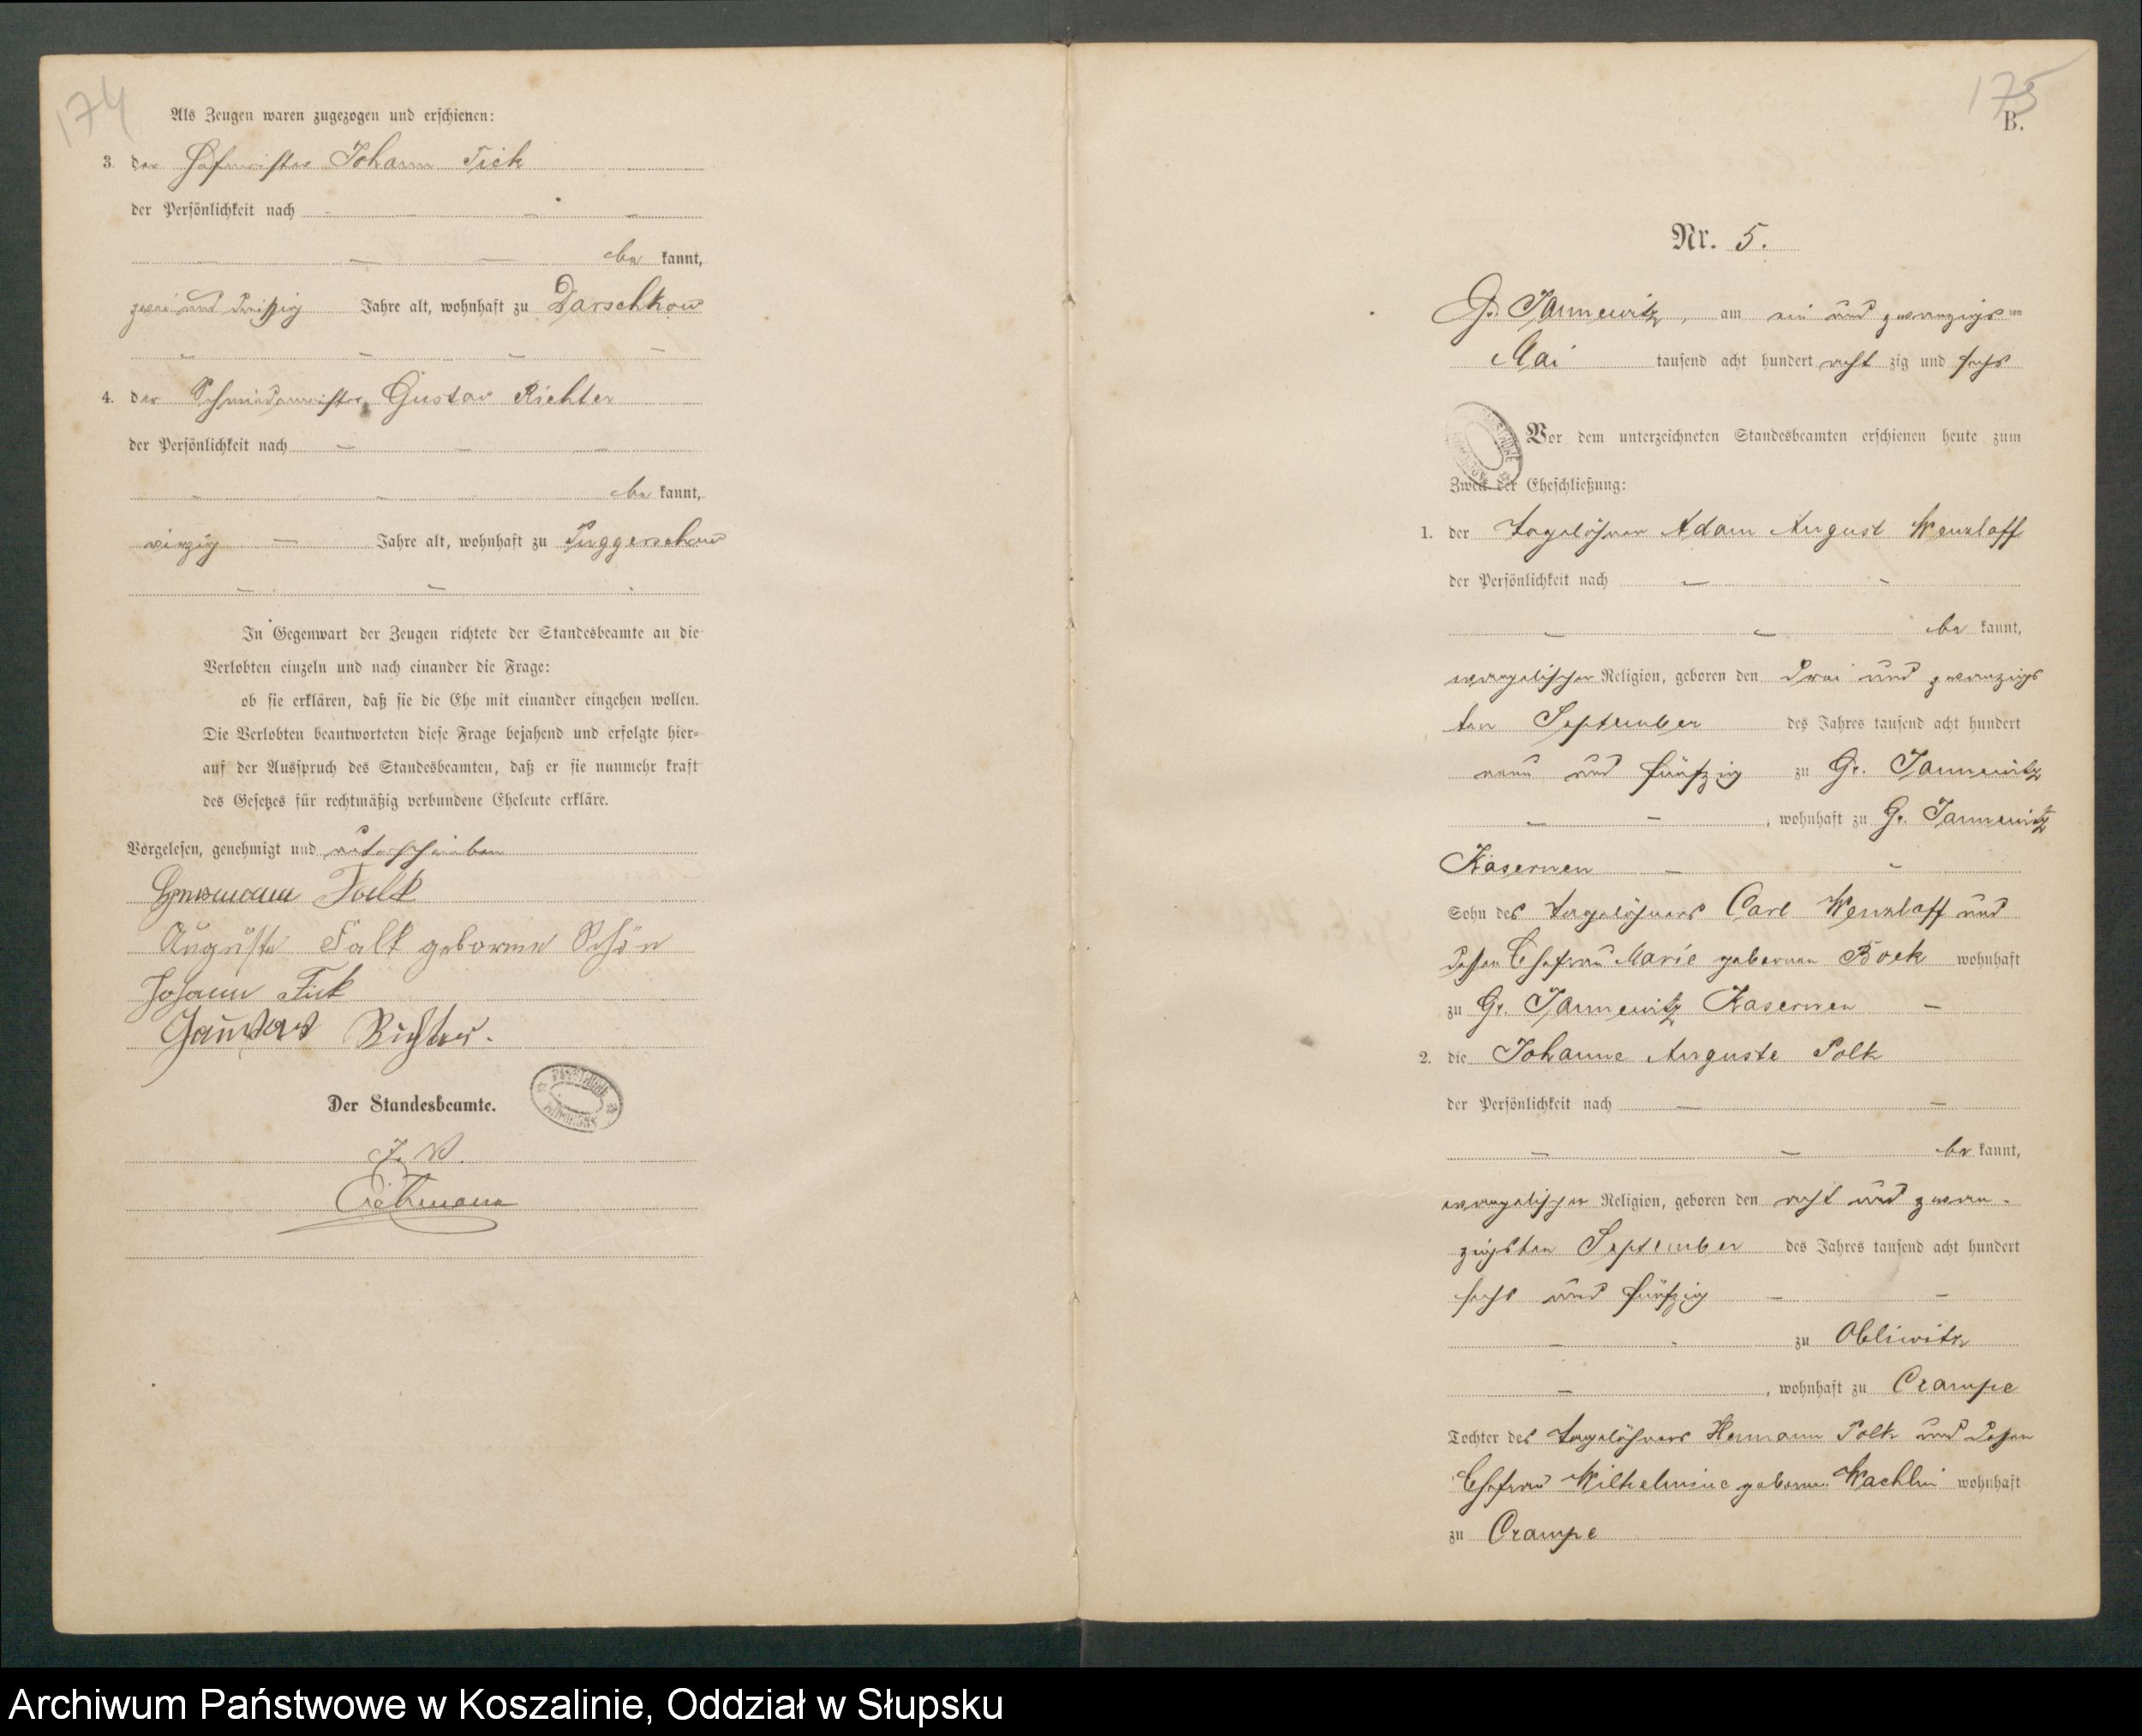 174
Als Zeugen waren zugezogen und erschienen:
3. der Hofmeister Johann Fick
der Persönlichkeit nach
be kannt,
zwei und dreißig Jahre alt, wohnhaft zu Darschkow
4. der Schmiedemeister Gustav Richter
der Persönlichkeit nach
be kannt,
vierzig Jahre alt, wohnhaft zu Puggerschow
In Gegenwart der Zeugen richtete der Standesbeamte an die
Verlobten einzeln und nach einander die Frage:
ob sie erklären, daß sie die Ehe mit einander eingehen wollen.
Die Verlobten beantworteten diese Frage bejahend und erfolgte hier-
auf der Ausspruch des Standesbeamten, daß er sie nunmehr kraft
des Gesetzes für rechtmäßig verbundene Eheleute erkläre.
Vorgelesen, genehmigt und unterschrieben
Herrmann Falk
Auguste Falk geborene Schön
Johann Fick
Gustav Richter.
Der Standesbeamte.
J. V.
175
B.
Nr. 5.
Gr. Jannewitz, am ein und zwanzigs ten
Mai tausend acht hundert acht zig und sechs
Vor dem unterzeichneten Standesbeamten erschienen heute zum
Zweck der Eheschließung:
1. der Tagelöhner Adam August Wenzlaff
der Persönlichkeit nach
be kannt,
evangelischer Religion, geboren den drei und zwanzigs
ten September des Jahres tausend acht hundert
neun und fünfzig zu Gr. Jannewitz
, wohnhaft zu Gr. Jannewitz
Kasernen
Sohn des Tagelöhners Carl Wenzlaff und
dessen Ehefrau Marie geborenen Bock wohnhaft
zu Gr. Jannewitz Kasernen
2. die Johanne Auguste Polk
der Persönlichkeit nach
be kannt,
evangelischer Religion, geboren den acht und zwan-
zigsten September des Jahres tausend acht hundert
sechs und fünfzig
zu Obliwitz
, wohnhaft zu Crampe
Tochter des Tagelöhners Hermann Polk und dessen
Ehefrau Wilhelmine geborene Wachlin wohnhaft
zu Crampe
Archiwum Państwowe w Koszalinie, Oddział w Słupsku